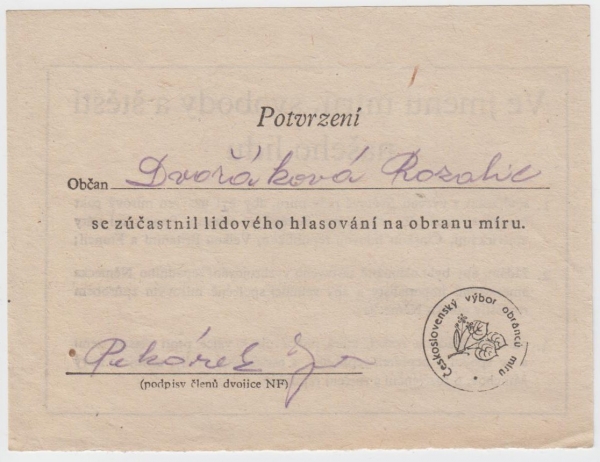 Potvrzení
Občan Dvořáková Rozalie
se zúčastnil lidového hlasování na obranu míru.
Československý výbor obránců míru
Pekárek
(podpisy členů dvojice NF)